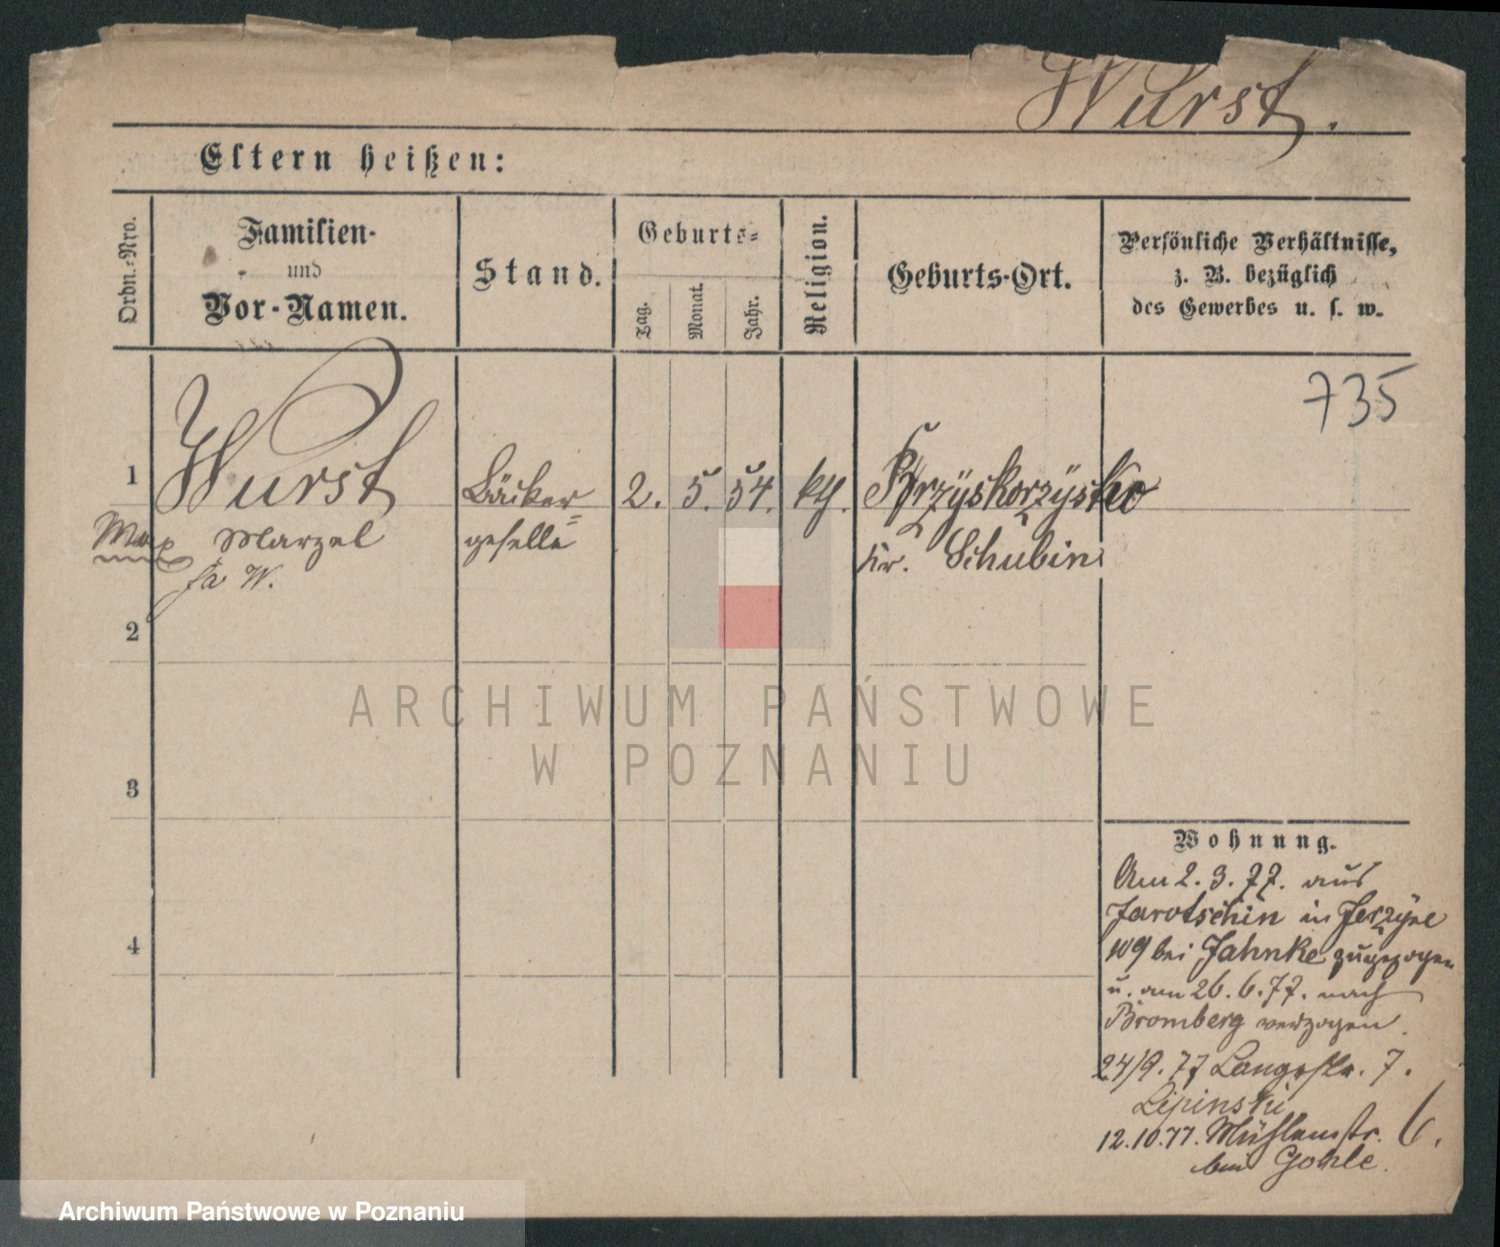 Wurst.
Eltern heißen:
Ordn.-Nro.
Familien-
und
Vor-Namen.
Stand.
Geburts-
Tag.
Monat.
Jahr.
Religion.
Geburts-Ort.
Persönliche Verhältnisse,
z. B. bezüglich
des Gewerbes u. s. w.
735
1 Wurst Bäcker= 2. 5. 54. kth. Krzyskorzysko
Marzel geselle Kr. Schubin
W.
2
3
4
ARCHIWUM PAŃSTWOWE
W POZNANIU
Wohnung.
Am 2. 3. 77. aus
Jarotschin in Jerzyce
109 bei Jahnke zugezogen
u. am 26. 6. 77. nach
Bromberg verzogen.
24/9. 77 Langestr. 7.
Lipinski
12.10.77. Mühlenstr. 6.
bei Gohle.
Archiwum Państwowe w Poznaniu